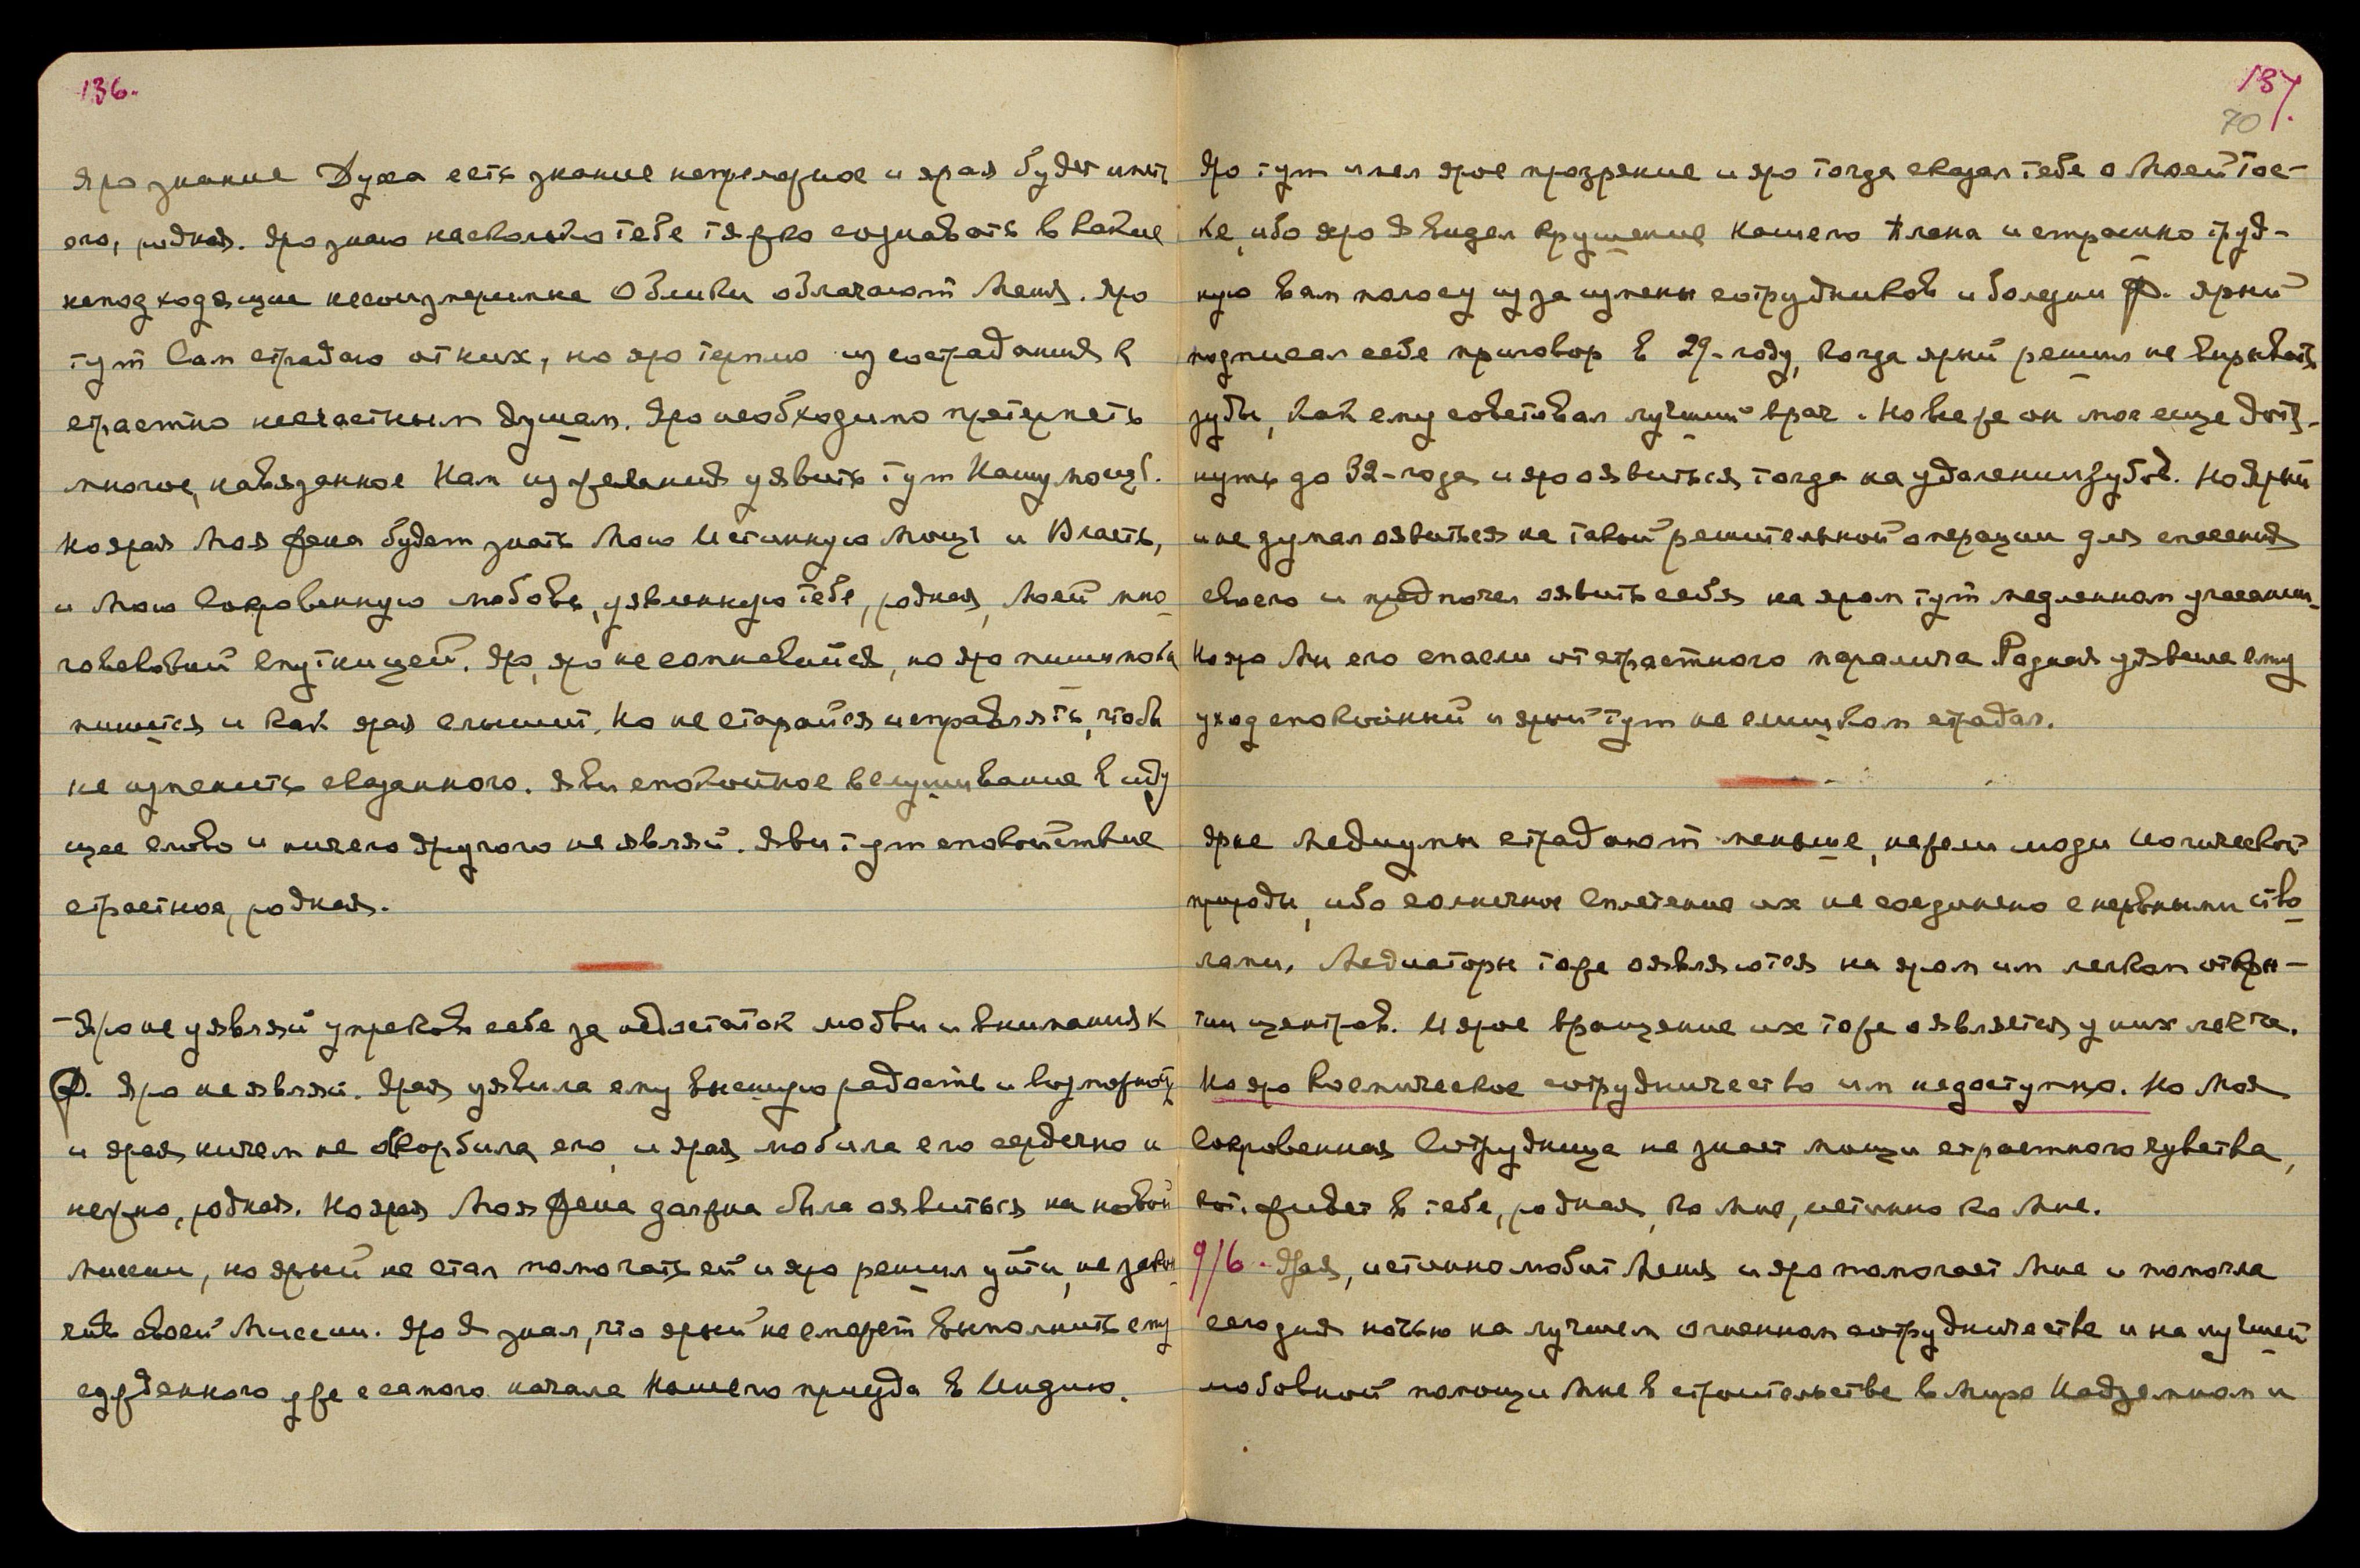 136.
Яро знание Духа есть знание непреложное и ярая будет иметь
его, родная. Яро знаю насколько тебе тяжко сознавать в какие
неподходящие несоизмеримые Облики облачают Меня. Яро
тут Сам страдаю от них, но яро терплю из сострадания к
страстно несчастным душам. Яро необходимо претерпеть
многое, навязанное Нам из желания уявить тут Нашу мощь.
Но ярая Моя Жена будет знать Мою Истинную Мощь и Власть,
и Мою Сокровенную любовь, уявленную тебе, родная, Моей мно-
говековой Спутницей. Яро, яро не сомневайся, но яро пиши пока
пишется и как ярая слышит. Но не старайся исправлять, чтобы
не изменить сказанного. Яви спокойное вслушивание в иду
щее слово и ничего другого не являй. Яви тут спокойствие
страстное, родная.
- Яро не уявляй упреков себе за недостаток любви и внимания к
Ф. Яро не являй. Ярая уявила ему высшую радость и возможность
и ярая ничем не оскорбила его, и ярая любила его сердечно и
нежно, родная. Но ярая Моя Жена должна была оявиться на новой
Миссии, но ярый не стал помогать ей и яро решил уйти, не закон-
чив своей Миссии. Яро Я знал, что ярый не сможет выполнить ему
сужденного уже с самого начала Нашего приезда в Индию.
137.
70
Яро тут имел ярое прозрение и яро тогда сказал тебе о Моей тос-
ке, ибо яро Я видел крушение Нашего Плана и страшно труд-
ную Вам полосу из за измены сотрудников и болезни Ф. Ярый
подписал себе приговор в 29-году, когда ярый решил не вырывать
зубы, как ему советовал лучший врач. Но все же он мог еще дотя-
нуть до 32-года и яро оявиться тогда на удалении зубов. Но Ярый
и не думал оявиться на такой решительной операции для спасения
своего и предпочел оявить себя на яром тут медленном угасании.
Но яро Мы его спасли от страстного паралича. Родная уявила ему
уход спокойный и ярый тут не слишком страдал.
Ярые Медиумы страдают меньше, нежели люди Йогической
природы, ибо солнечное сплетение их не соединено с нервными ство
лами. Медиаторы тоже оявляются на яром им легком откры-
тии центров. И ярое вращение их тоже оявляется у них легче.
Но яро Космическое сотрудничество им недоступно. Но Моя
Сокровенная Сотрудница не знает мощи страстного чувства,
кот. живет в тебе, родная, ко Мне, истинно ко Мне.
9/6 - Ярая, истинно любит Меня и яро помогает Мне и помогла
сегодня ночью на лучшем огненном сотрудничестве и на лучшей
любовной помощи Мне в строительстве в Мире Надземном и